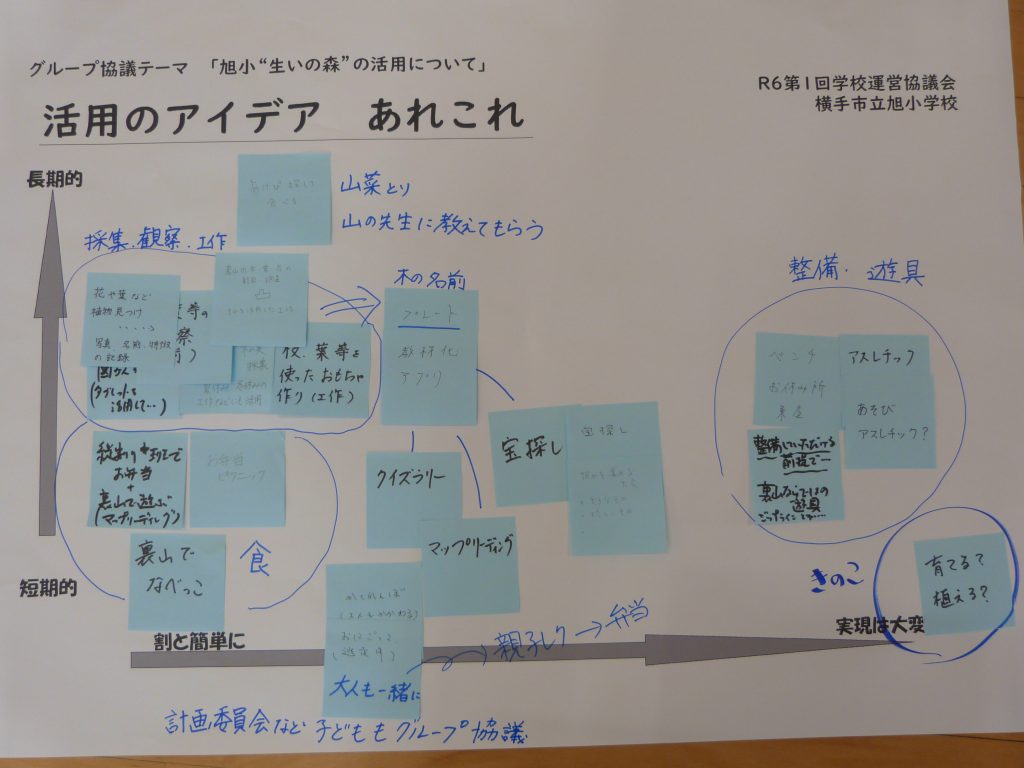 グループ協議テーマ 「旭小“生いの森”の活用について」
R6第1回学校運営協議会
横手市立旭小学校
活用のアイデア あれこれ
長期的
あけび 探して
食べる
山菜とり
山の先生に教えてもらう
採集.観察.工作
花や葉など
植物見つけ
・・・・・
写真、名前、特徴
の記録
(タブレットを
活用して…)
枝、葉等を
使ったおもちゃ
作り(工作)
木の名前
プレート
教材化
アプリ
整備・遊具
ベンチ
お休み所
東屋
アスレチック
あそび
アスレチック?
整備していただける
前提で…
裏山ならではの
遊具
お弁当
+
裏山で遊ぶ
(マップリーディング)
お弁当
ピクニック
裏山で
なべっこ
食
クイズラリー
マップリーディング
宝探し
宝探し
かくれんぼ
おにごっこ
大人も一緒に
親子レク→弁当
きのこ
育てる?
植える?
短期的
割と簡単に
実現は大変
計画委員会など子どももグループ協議